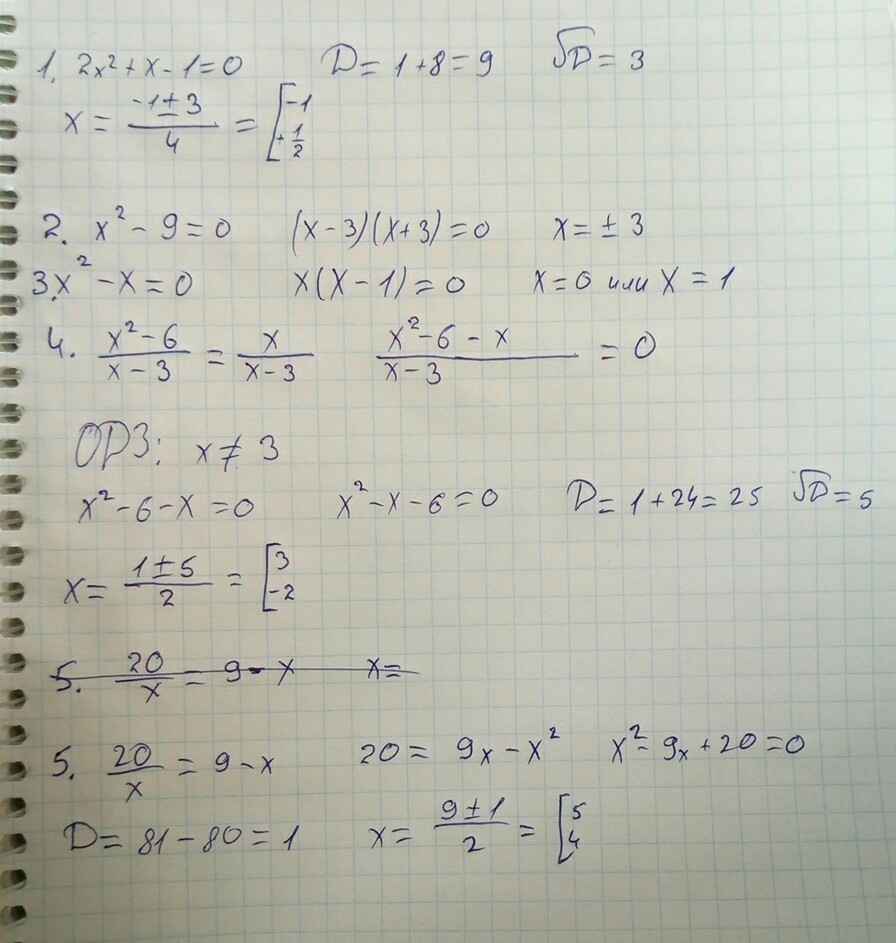 1. 2x² + x - 1 = 0 D = 1 + 8 = 9 √D = 3
x = (-1 ± 3)/4 = [-1; +1/2
2. x² - 9 = 0 (x - 3)(x + 3) = 0 x = ± 3
3. x² - x = 0 x(x - 1) = 0 x = 0 или x = 1
4. (x² - 6)/(x - 3) = x/(x - 3) (x² - 6 - x)/(x - 3) = 0
ОДЗ: x ≠ 3
x² - 6 - x = 0 x² - x - 6 = 0 D = 1 + 24 = 25 √D = 5
x = (1 ± 5)/2 = [3; -2
5. 20/x = 9 - x x =
5. 20/x = 9 - x 20 = 9x - x² x² - 9x + 20 = 0
D = 81 - 80 = 1 x = (9 ± 1)/2 = [5; 4